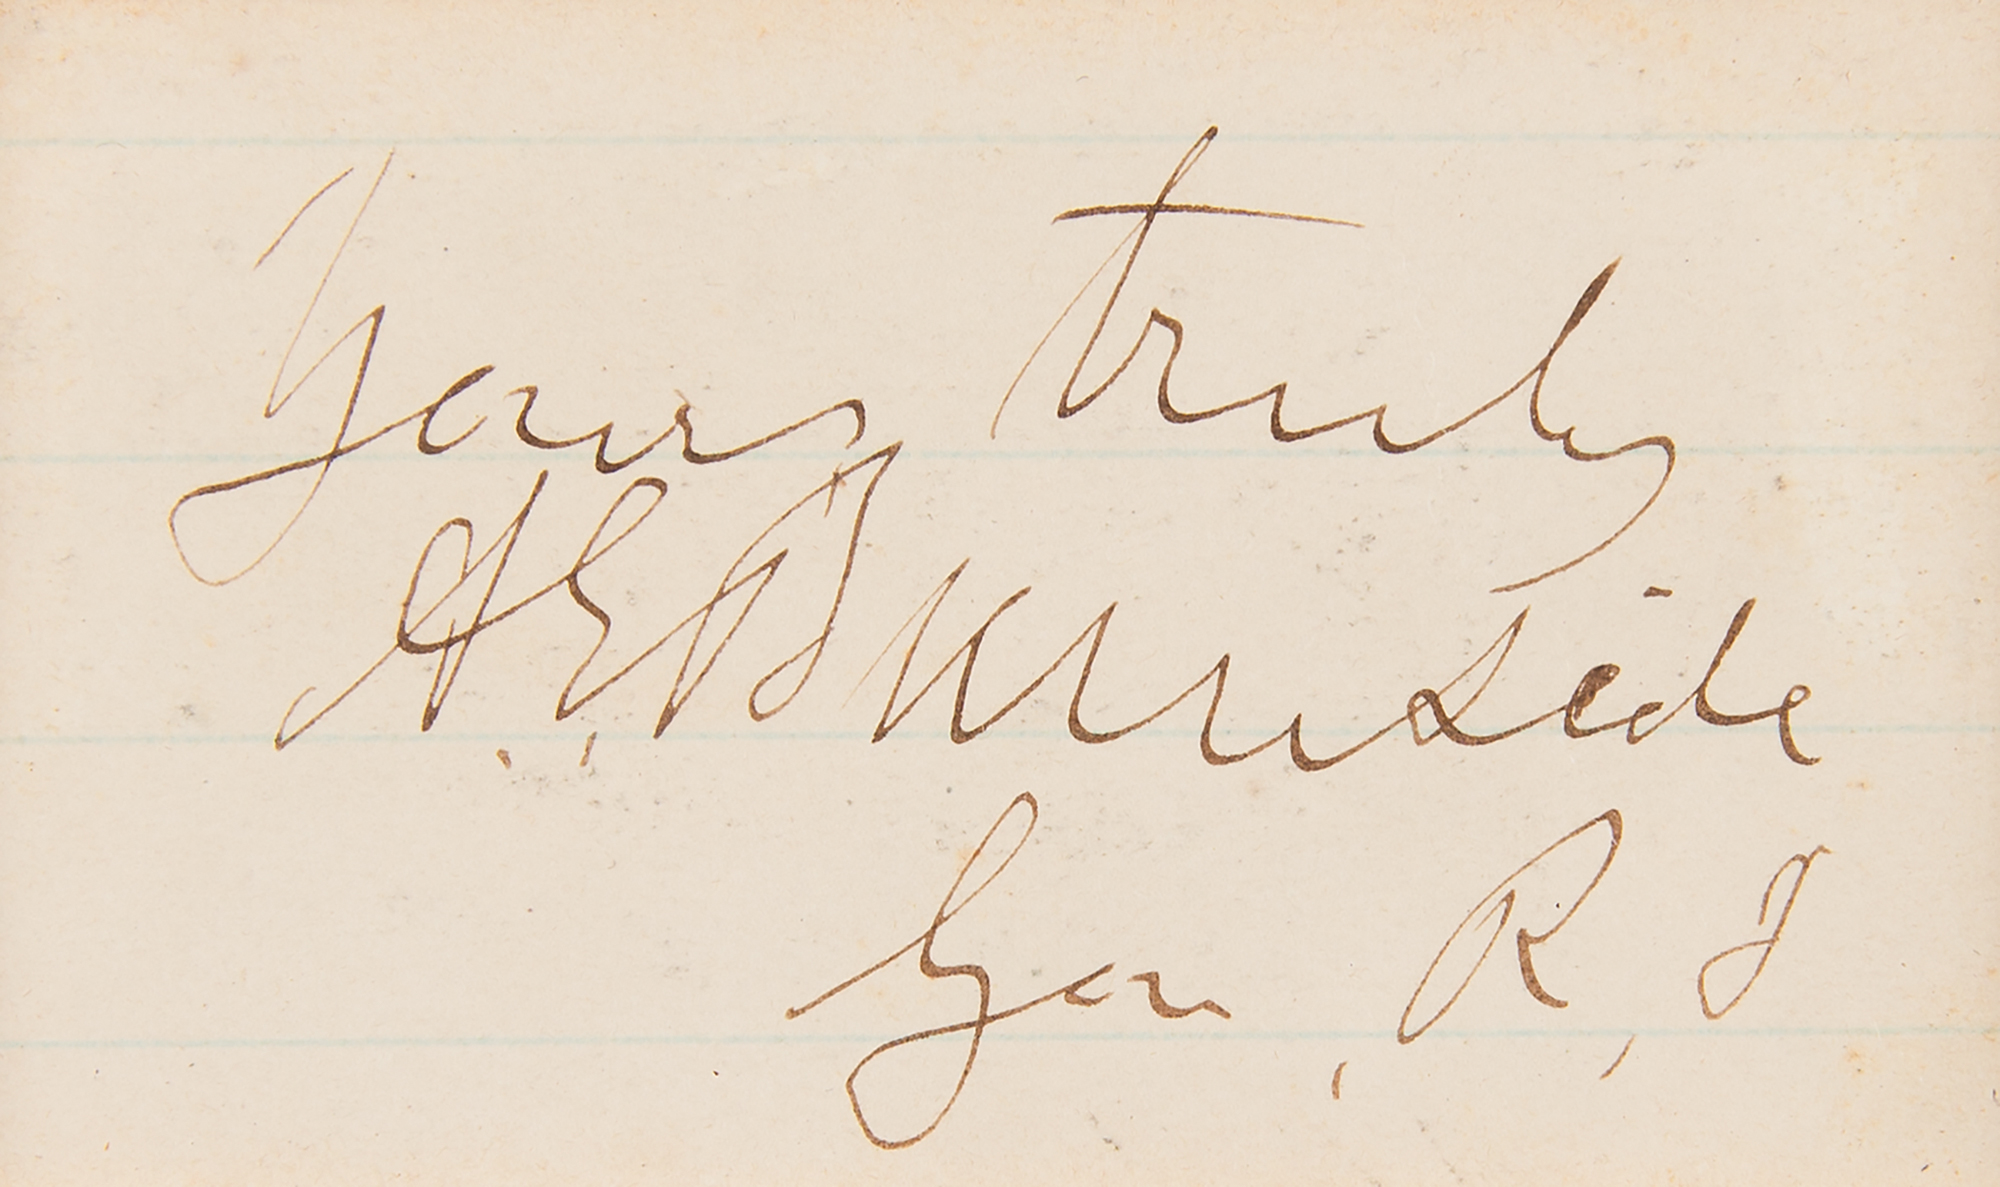 Yours truly
A. E. Burnside
Gov, R, I